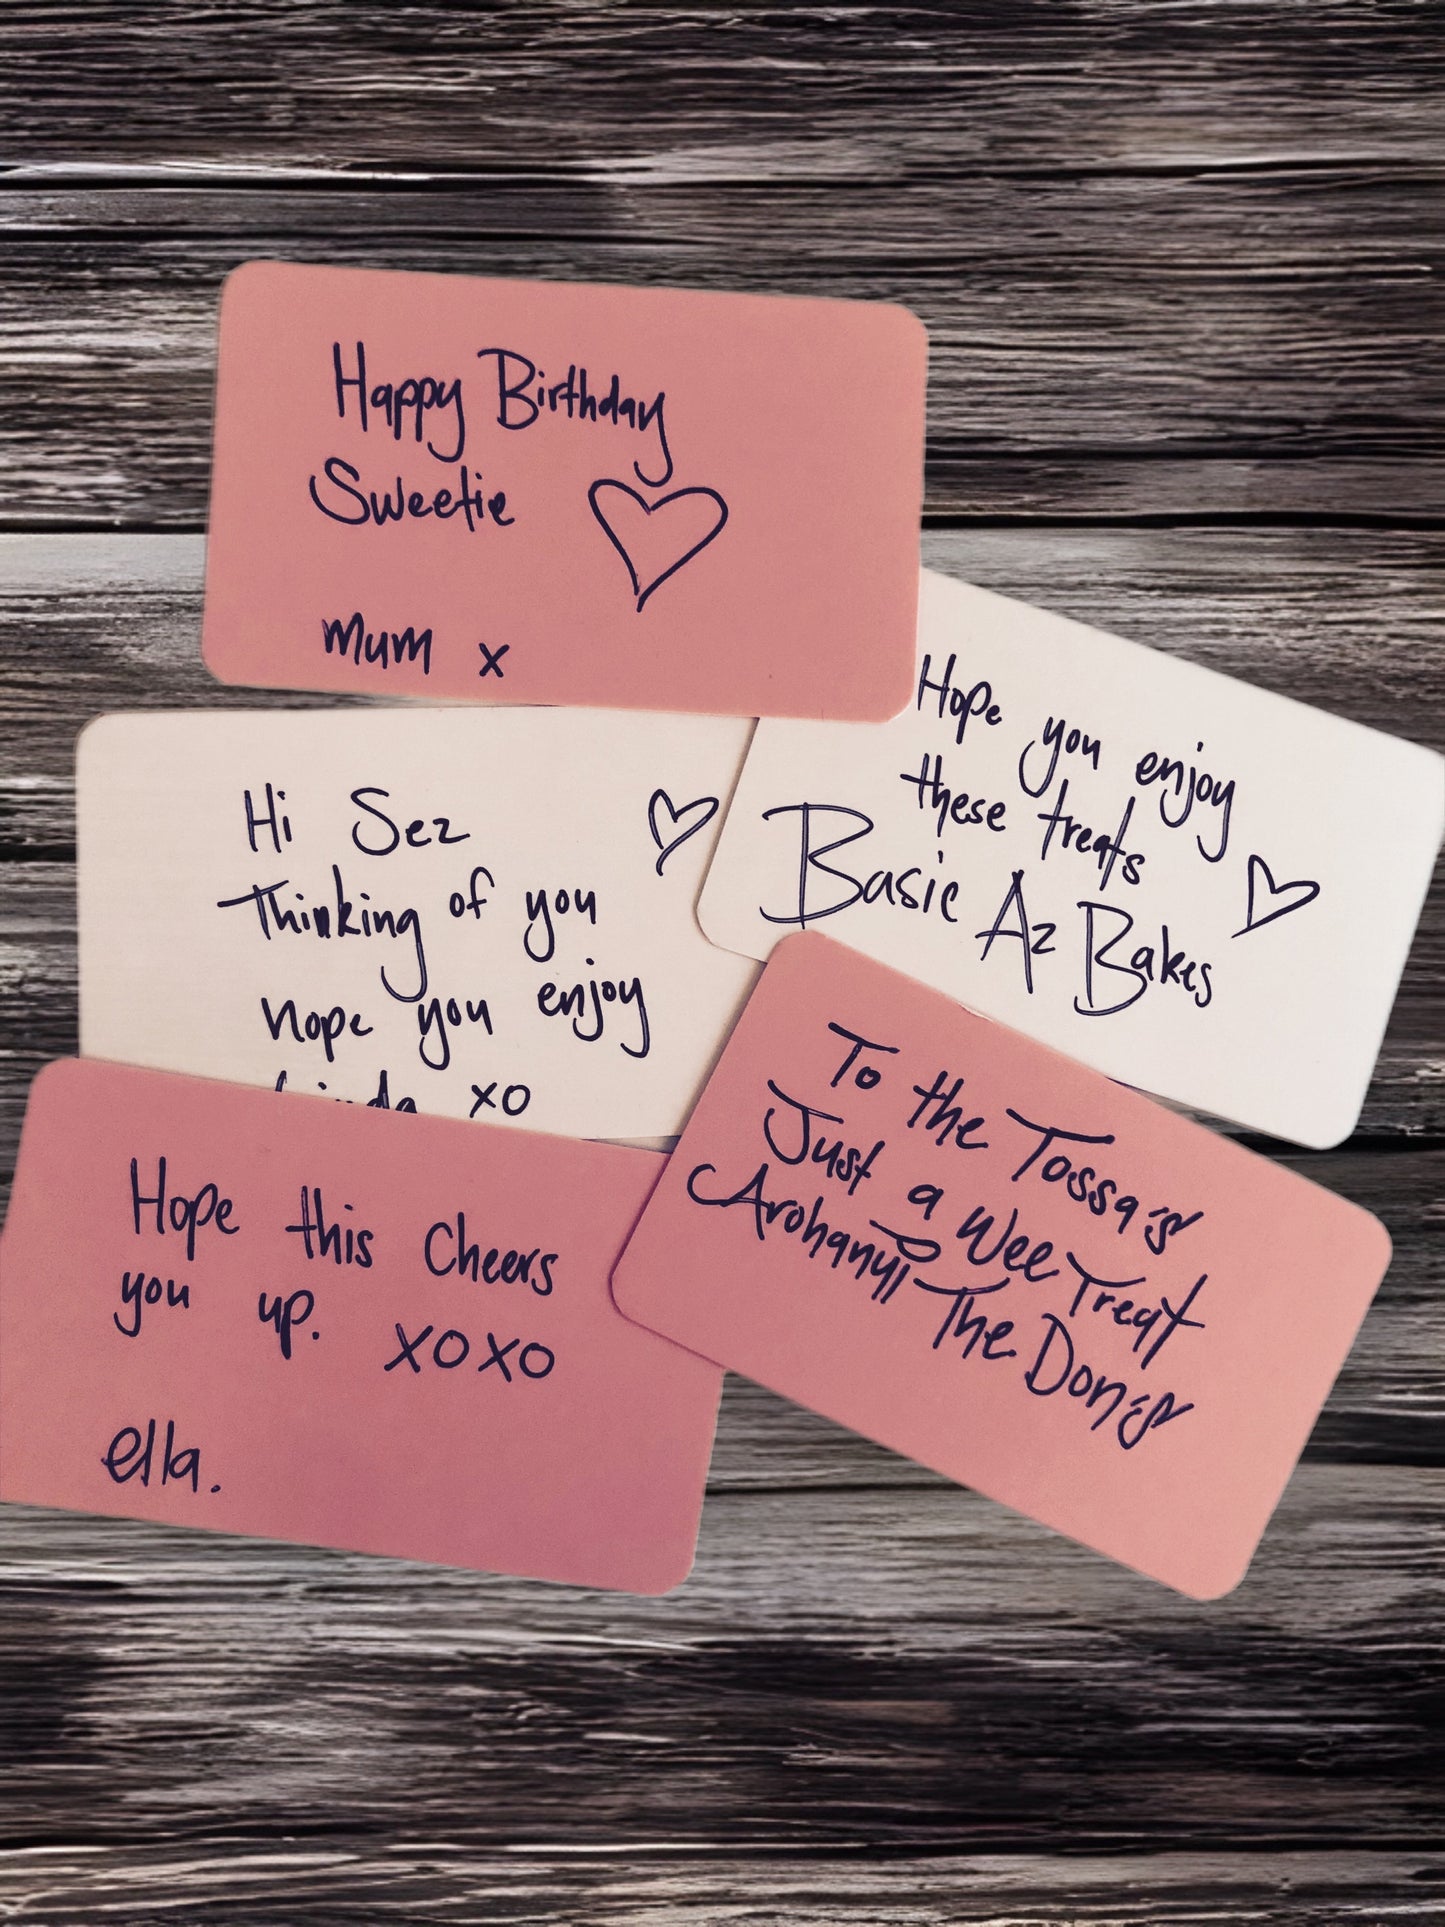 Happy Birthday
Sweetie
Mum x
Hope you enjoy
these treats
Basic Az Bakes
Hi Sez
Thinking of you
hope you enjoy
xo
To the Tossa's
Just a Wee Treat
The Don's
Hope this Cheers
you up. xoxo
ella.